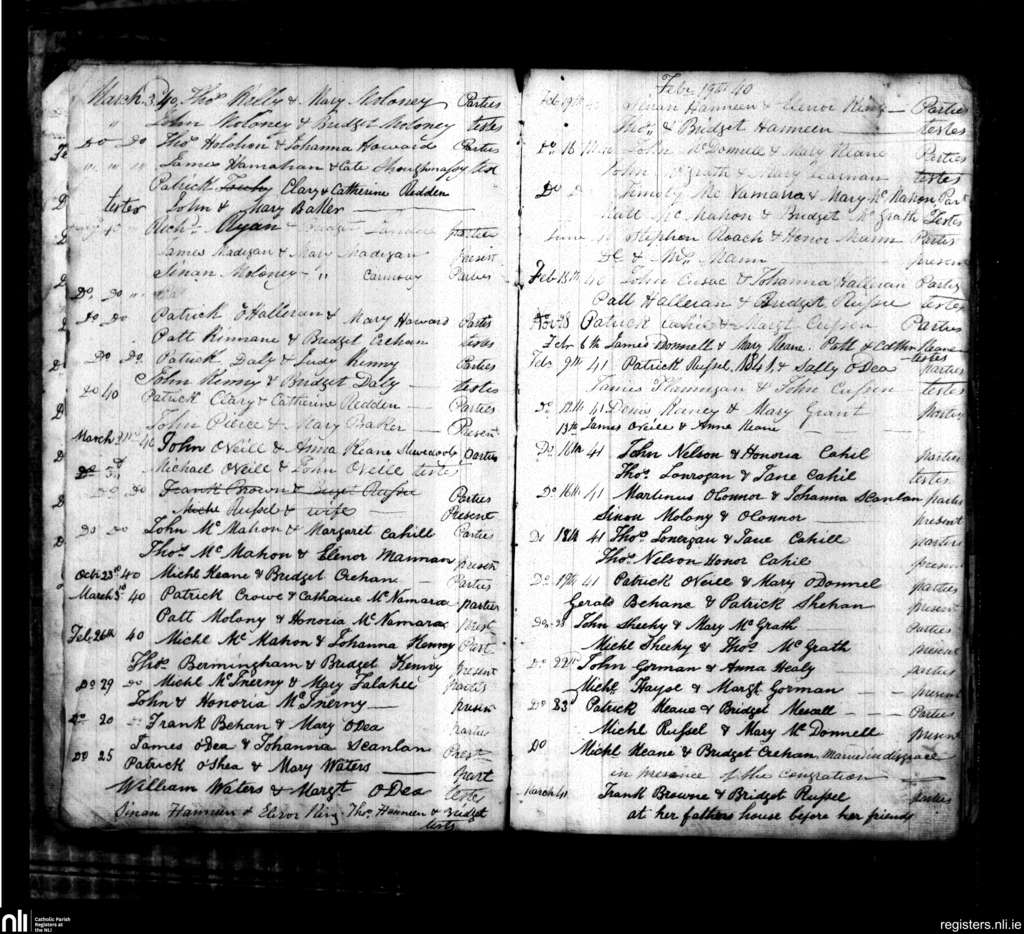 March 3 40 Thos Kelly & Mary Moloney Parties
" John Moloney & Bridget Moloney testes
Do Do Thos Holohan & Johanna Howard Parties
" " " James & Cate test
Patrick Clary & Catherine Redden
testes John & Mary Baker
Richd Ryan parties
James Madigan & Mary Madigan Present
Sinan Moloney " Parties
Do Do "
Do Do Patrick O'Halleran & Mary Howard Partis
Patt Kinnane & Bridget Crehan testes
Do Do Patrick Daly & Judy Kenny Parties
John Kenny & Bridget Daly testes
Do 40 Patrick Clary & Catherine Redden Parties
John Pierce & Mary Baker Present
March 40 John ONeill & Anna Keane Parties
Do 3d Michael ONeill & John ONeille testes
Do Do Frank Brown & Bridget Russel Parties
Michl Russel & wife Present
Do Do John McMahon & Margaret Cahill Parties
Thos McMahon & Elenor Mannan present
Octr 23rd 40 Michl Keane & Bridget Crehan Parties
March 3d 40 Patrick Crowe & Catharine McNamara parties
Patt Molony & Honoria McNamara prest
Feb 26th 40 Michl McMahon & Johanna Kenny Part
Thos Bermingham & Bridget Kenny present
Do 29 Do Michl McInerny & Mary Falahee parties
John & Honoria McInerny presen
Do 20 Frank Behan & Mary ODea parties
James ODea & Johanna Scanlan Prest
Do 25 Patrick O'Shea & Mary Waters part
William Waters & Margt ODea testes
Sinan Hanneen & Elenor King. Thos Hanneen & Bridget
tests
Febr 19th 40
Feb 19th 40 Sinan Hanneen & Elenor King Parties
Thos & Bridget Hanneen testes
Do 16 John McDonnell & Mary Keane Parties
John McGrath & Mary testes
Do Timothy McNamara & Mary McMahon Part
Matt McMahon & Bridget McGrath Testes
June 40 Stephen Roach & Honor Mann Parties
& Mrs Mann present
Feb 13th 40 John Cusac & Johanna Halleran Partis
Patt Halleran & Bridget Russel testes
Patrick Cahill & Margt Cussen Parties
Febr 6th James Donnell & Mary Keane. Patt & Keane
testes
Feb 9th 41 Patrick Russel, 1841. & Sally ODea parties
James Flannigan & John Cussen testes
Do 12th 41 Denis Keiney & Mary Grant partys
13th James ONeill & Anne Keane
Do 16th 41 John Nelson & Honoria Cahil parties
Thos Lonrogan & Jane Cahil testes
Do 16th 41 Martinus OConnor & Johanna Scanlan parties
Sinon Molony & OConnor present
Do 18th 41 Thos Lonergan & Jane Cahill parties
Thos Nelson Honor Cahil present
Do 19th 41 Patrick ONeill & Mary ODonnel parties
Gerald Behane & Patrick Shehan present
Do John Sheehy & Mary McGrath Parties
Michl Sheehy & Thos McGrath present
Do 22nd John Gorman & Anna Healy parties
Michl Hayse & Margt Gorman present
Do 23d Patrick Meane & Bridget Parties
Michl Russel & Mary McDonnell present
Do Michl Keane & Bridget Crehan Married in disgrace
in presence of the congration
March 41 Frank Browne & Bridget Russel parties
at her fathers house before her friends
nli
Catholic Parish
Registers at
the NLI
registers.nli.ie